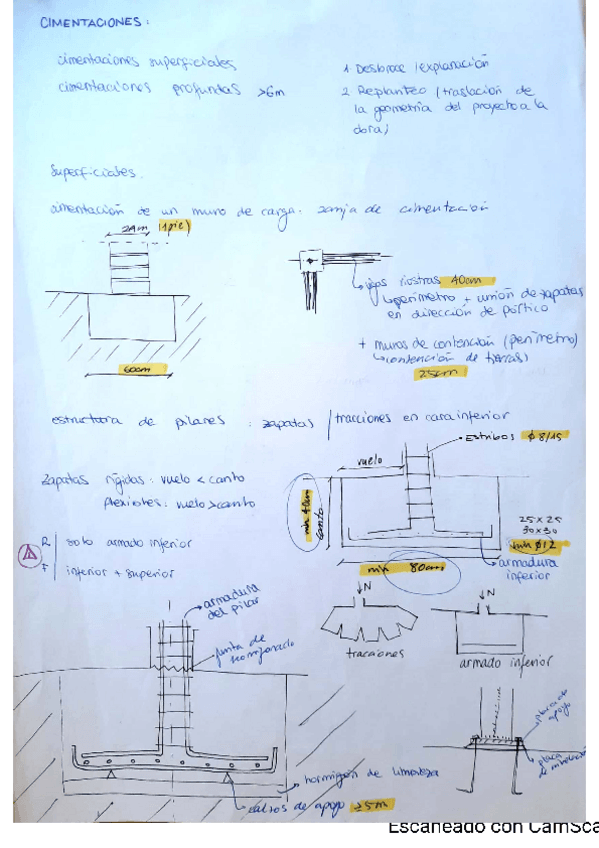 CIMENTACIONES:
cimentaciones superficiales
cimentaciones profundas >6m
1 Desbroce /explanación
2 Replanteo (traslación de
la geometría del proyecto a la
superficiales.
cimentación de un muro de carga. zanja de cimentación
24m (1pie)
60cm
vigas riostras 40cm
perímetro + unión de zapatas
en dirección de pórtico
+ muros de contención (perímetro)
contención de tierras)
25cm
estructura de pilares : zapatas / tracciones en cara inferior
Estribos ϕ8/15
vuelo
canto
zapatas rígidas: vuelo < canto
flexibles: vuelo > canto
R solo armado inferior
F inferior + superior
25 x 25
30 x 30
min ϕ12
armadura
inferior
min 80cm
N
tracciones
N
armado inferior
armadura
del pilar
junta de
hormigonado
hormigón de limpieza
calzos de apoyo ≥5m
placa de
apoyo
placa
Escaneado con CamSca